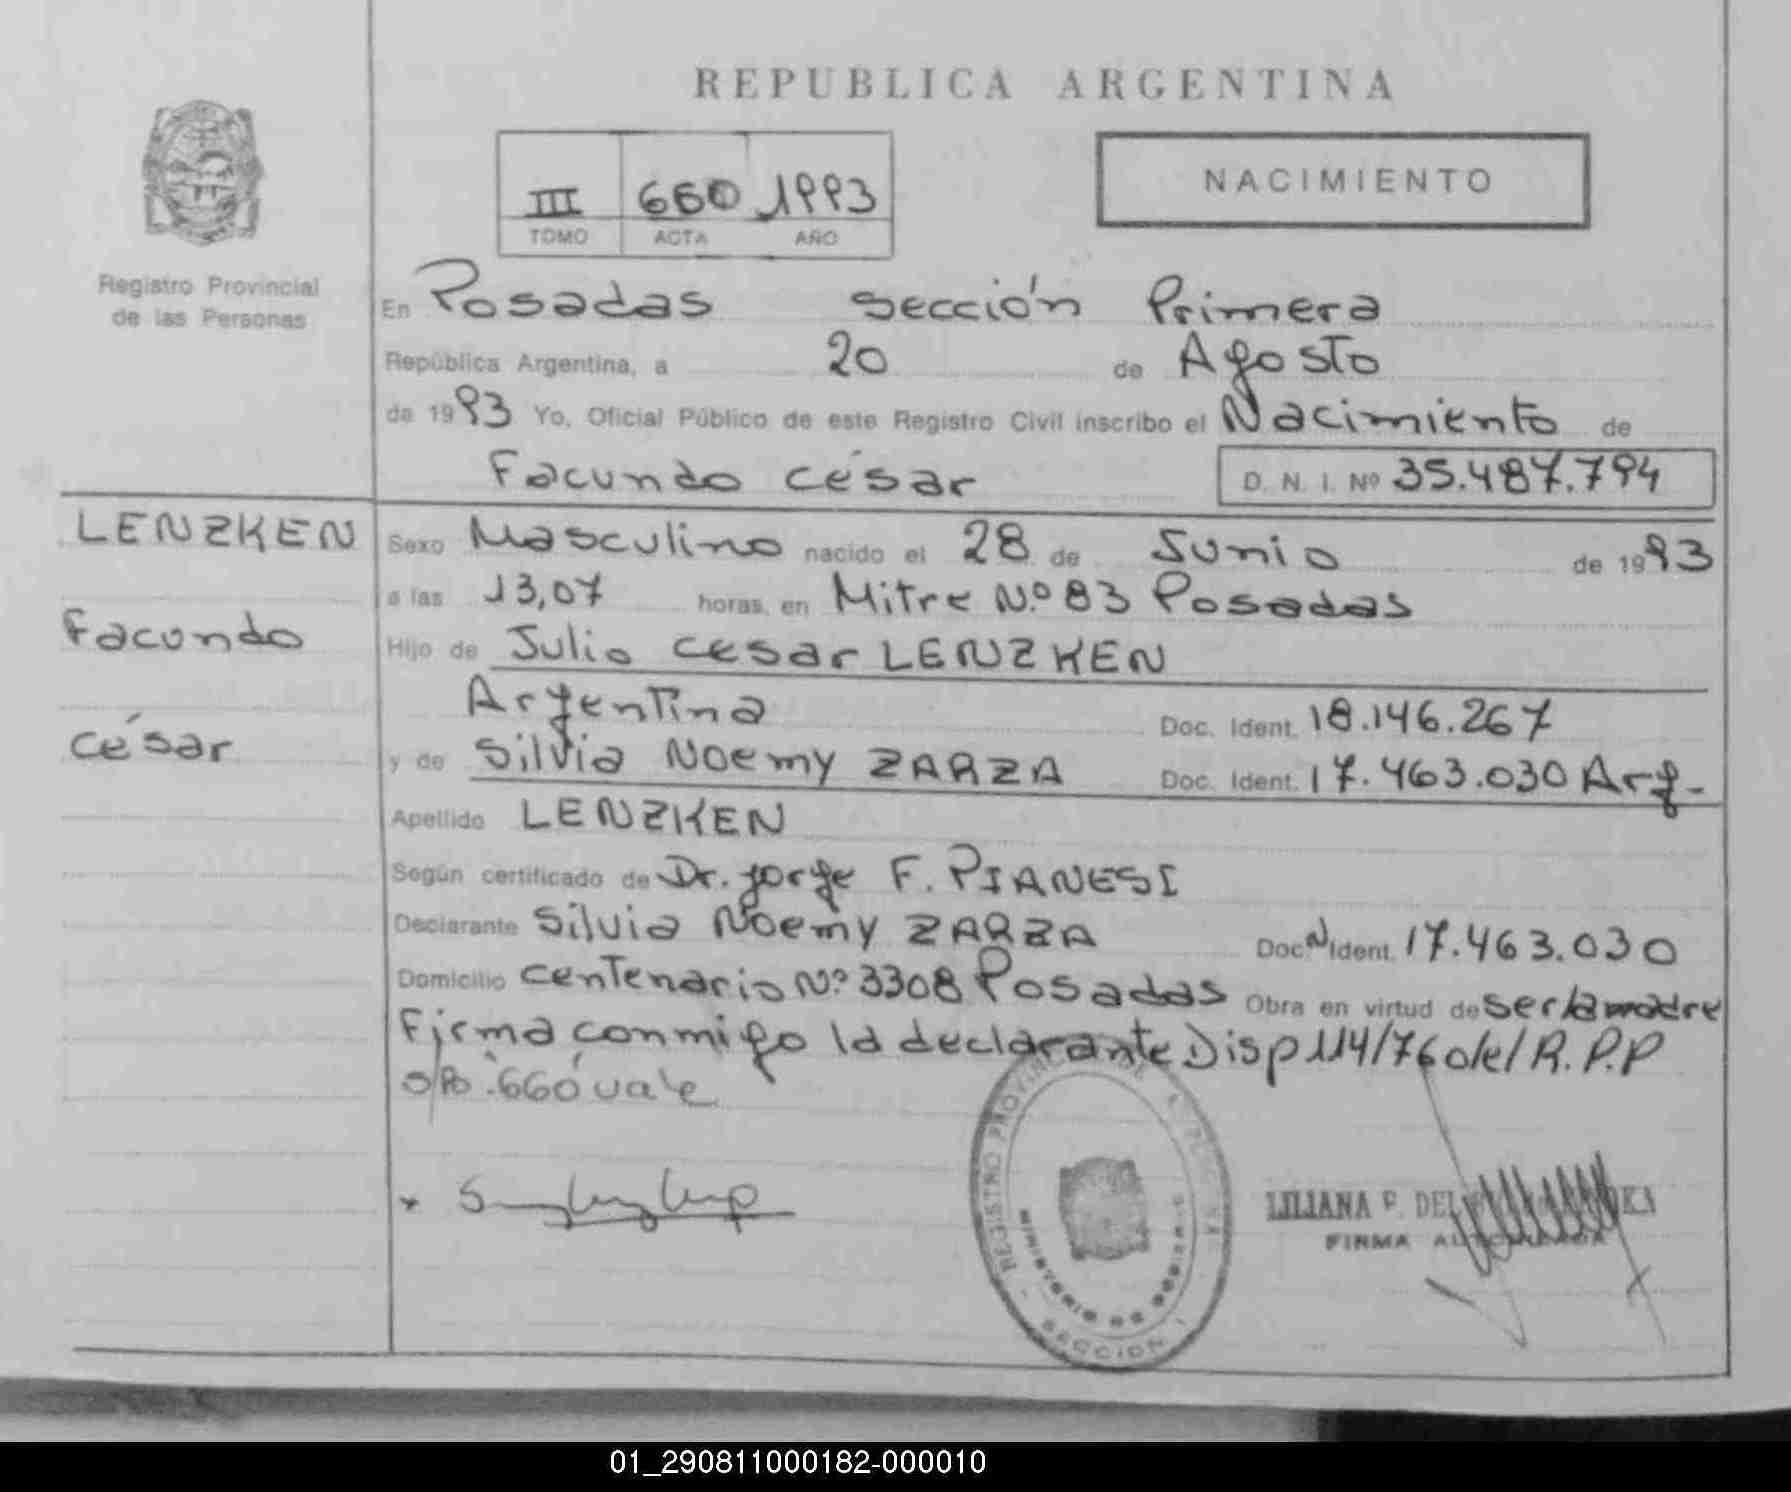 REPUBLICA ARGENTINA
III 660 1993
TOMO ACTA AÑO
NACIMIENTO
Registro Provincial
de las Personas
En Posadas sección Primera
República Argentina, a 20 de Agosto
de 1993 Yo, Oficial Público de este Registro Civil inscribo el Nacimiento de
Facundo césar D. N. I. Nº 35.487.794
LENZKEN
Facundo
césar
Sexo Masculino nacido el 28 de Junio de 1993
a las 13,07 horas, en Mitre N.º 83 Posadas
Hijo de Julio cesar LENZKEN
Argentina Doc. Ident. 18.146.267
y de Silvia Noemy ZARZA Doc. Ident. 17.463.030 Arg.-
Apellido LENZKEN
Según certificado de Dr. Jorge F. PIANESI
Declarante Silvia Noemy ZARZA Doc. Ident. 17.463.030
Domicilio centenario Nº 3308 Posadas Obra en virtud de ser la madre
Firma conmigo la declarante Disp 114/76 del R.P.P
s/Rº: 660 vale
REGISTRO PROVINCIAL DE
MINISTERIO DE GOBIERNO
SECCION 1
LILIANA F. DEL
FIRMA AUTORIZADA
01_290811000182-000010